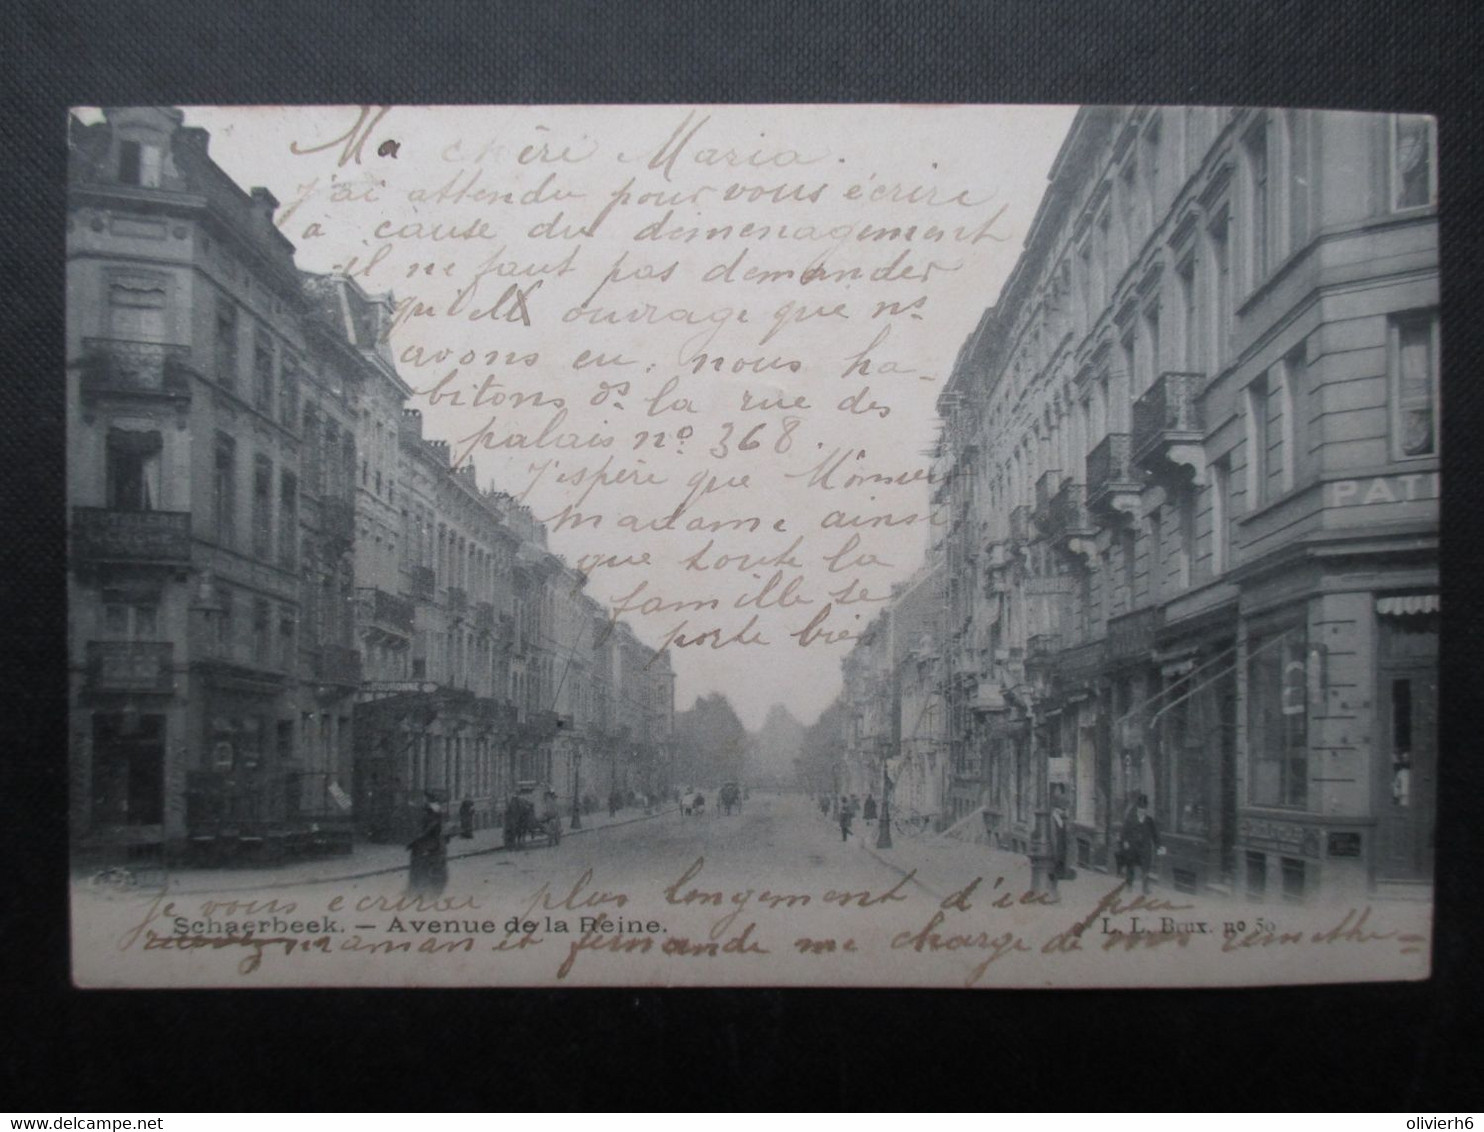 Ma chéri Maria.
j'ai attendu pour vous écrire
à cause du démenagement
il ne faut pas demander
qu'ell ouvrage que ns
avons eu, nous ha-
bitons ds la rue des
palais no 368.
J'espère que
madame ainsi
que toute la
famille se
porte bien
PAT
je vous ecrirai plus longement d'ici peu
Schaerbeek. — Avenue de la Reine.
L. L. Brux. no 50
maman et Fernande me charge de vous remettre =
olivierh6